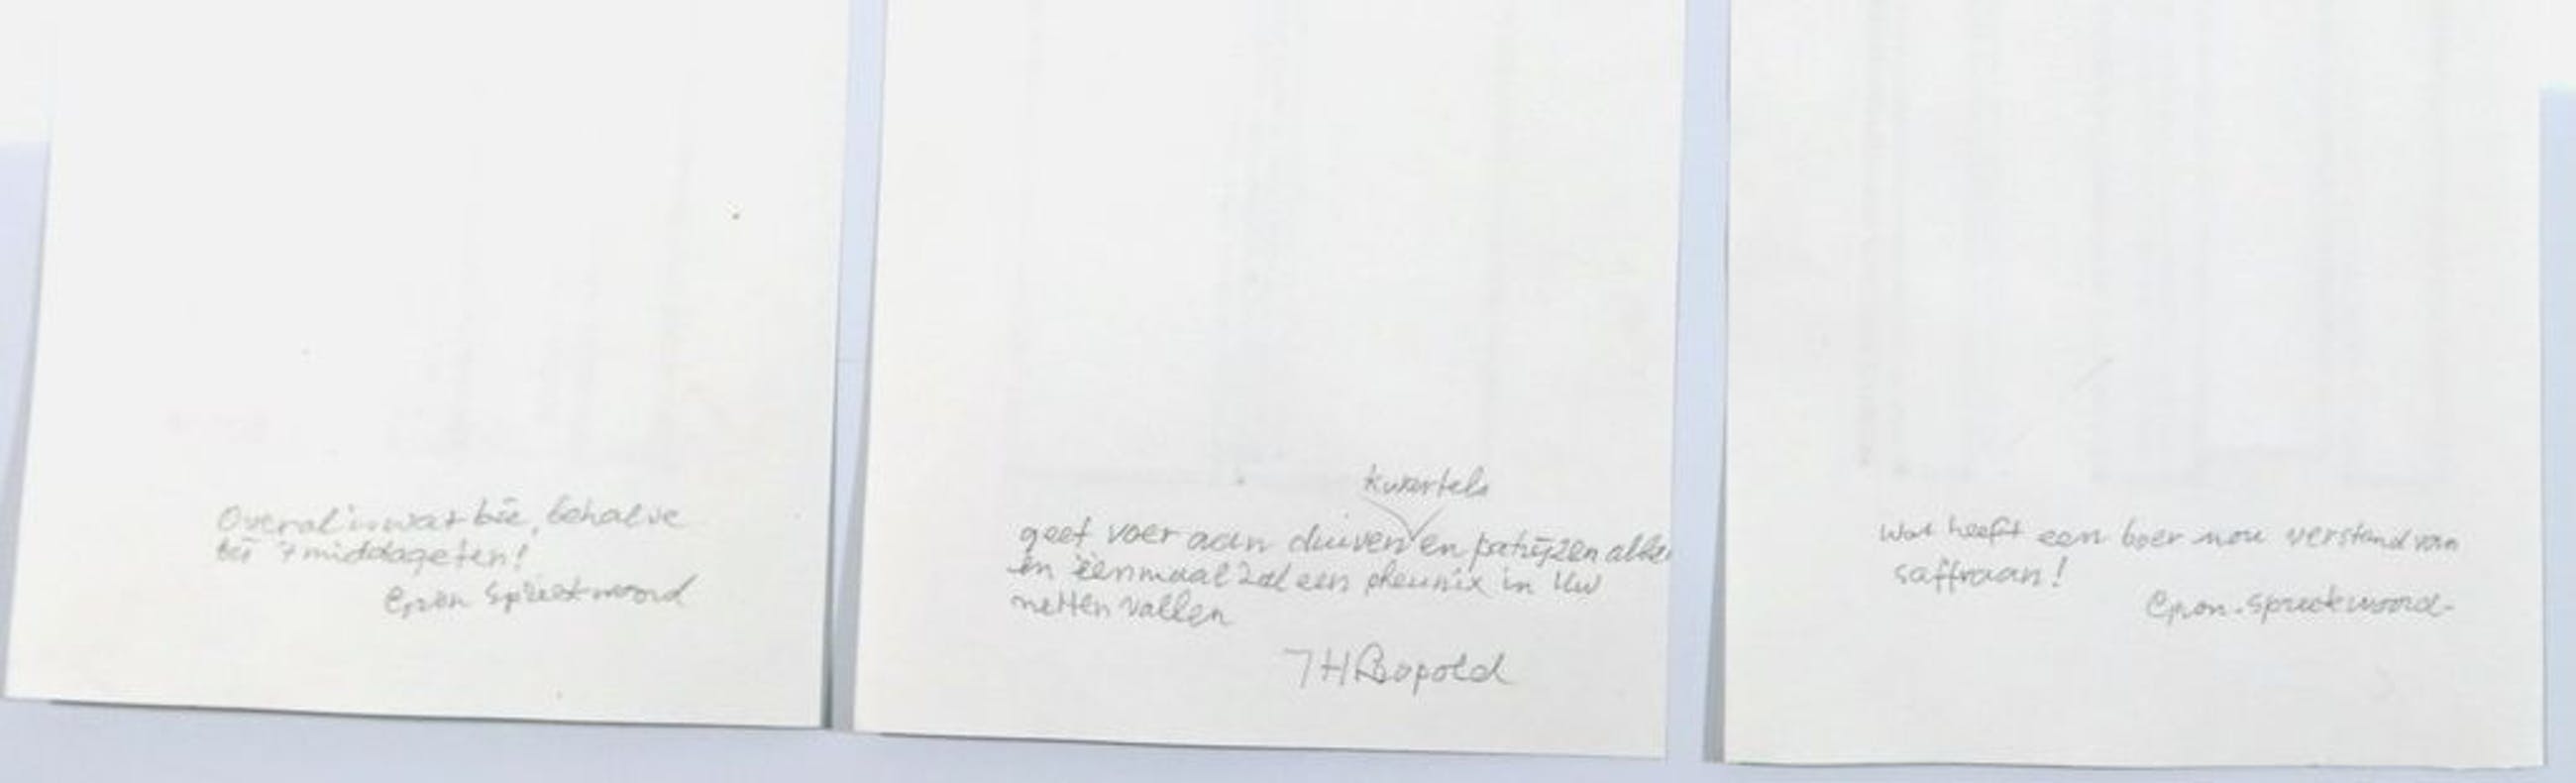 Overal is wat bij, behalve
bij 't middageten!
Gron. Spreekwoord
kwartels
geef voer aan duiven en patrijzen allen
en éénmaal zal een pheunix in Uw
netten vallen
JH Leopold
Wat heeft een boer nou verstand van
saffraan!
Gron. Spreekwoord-